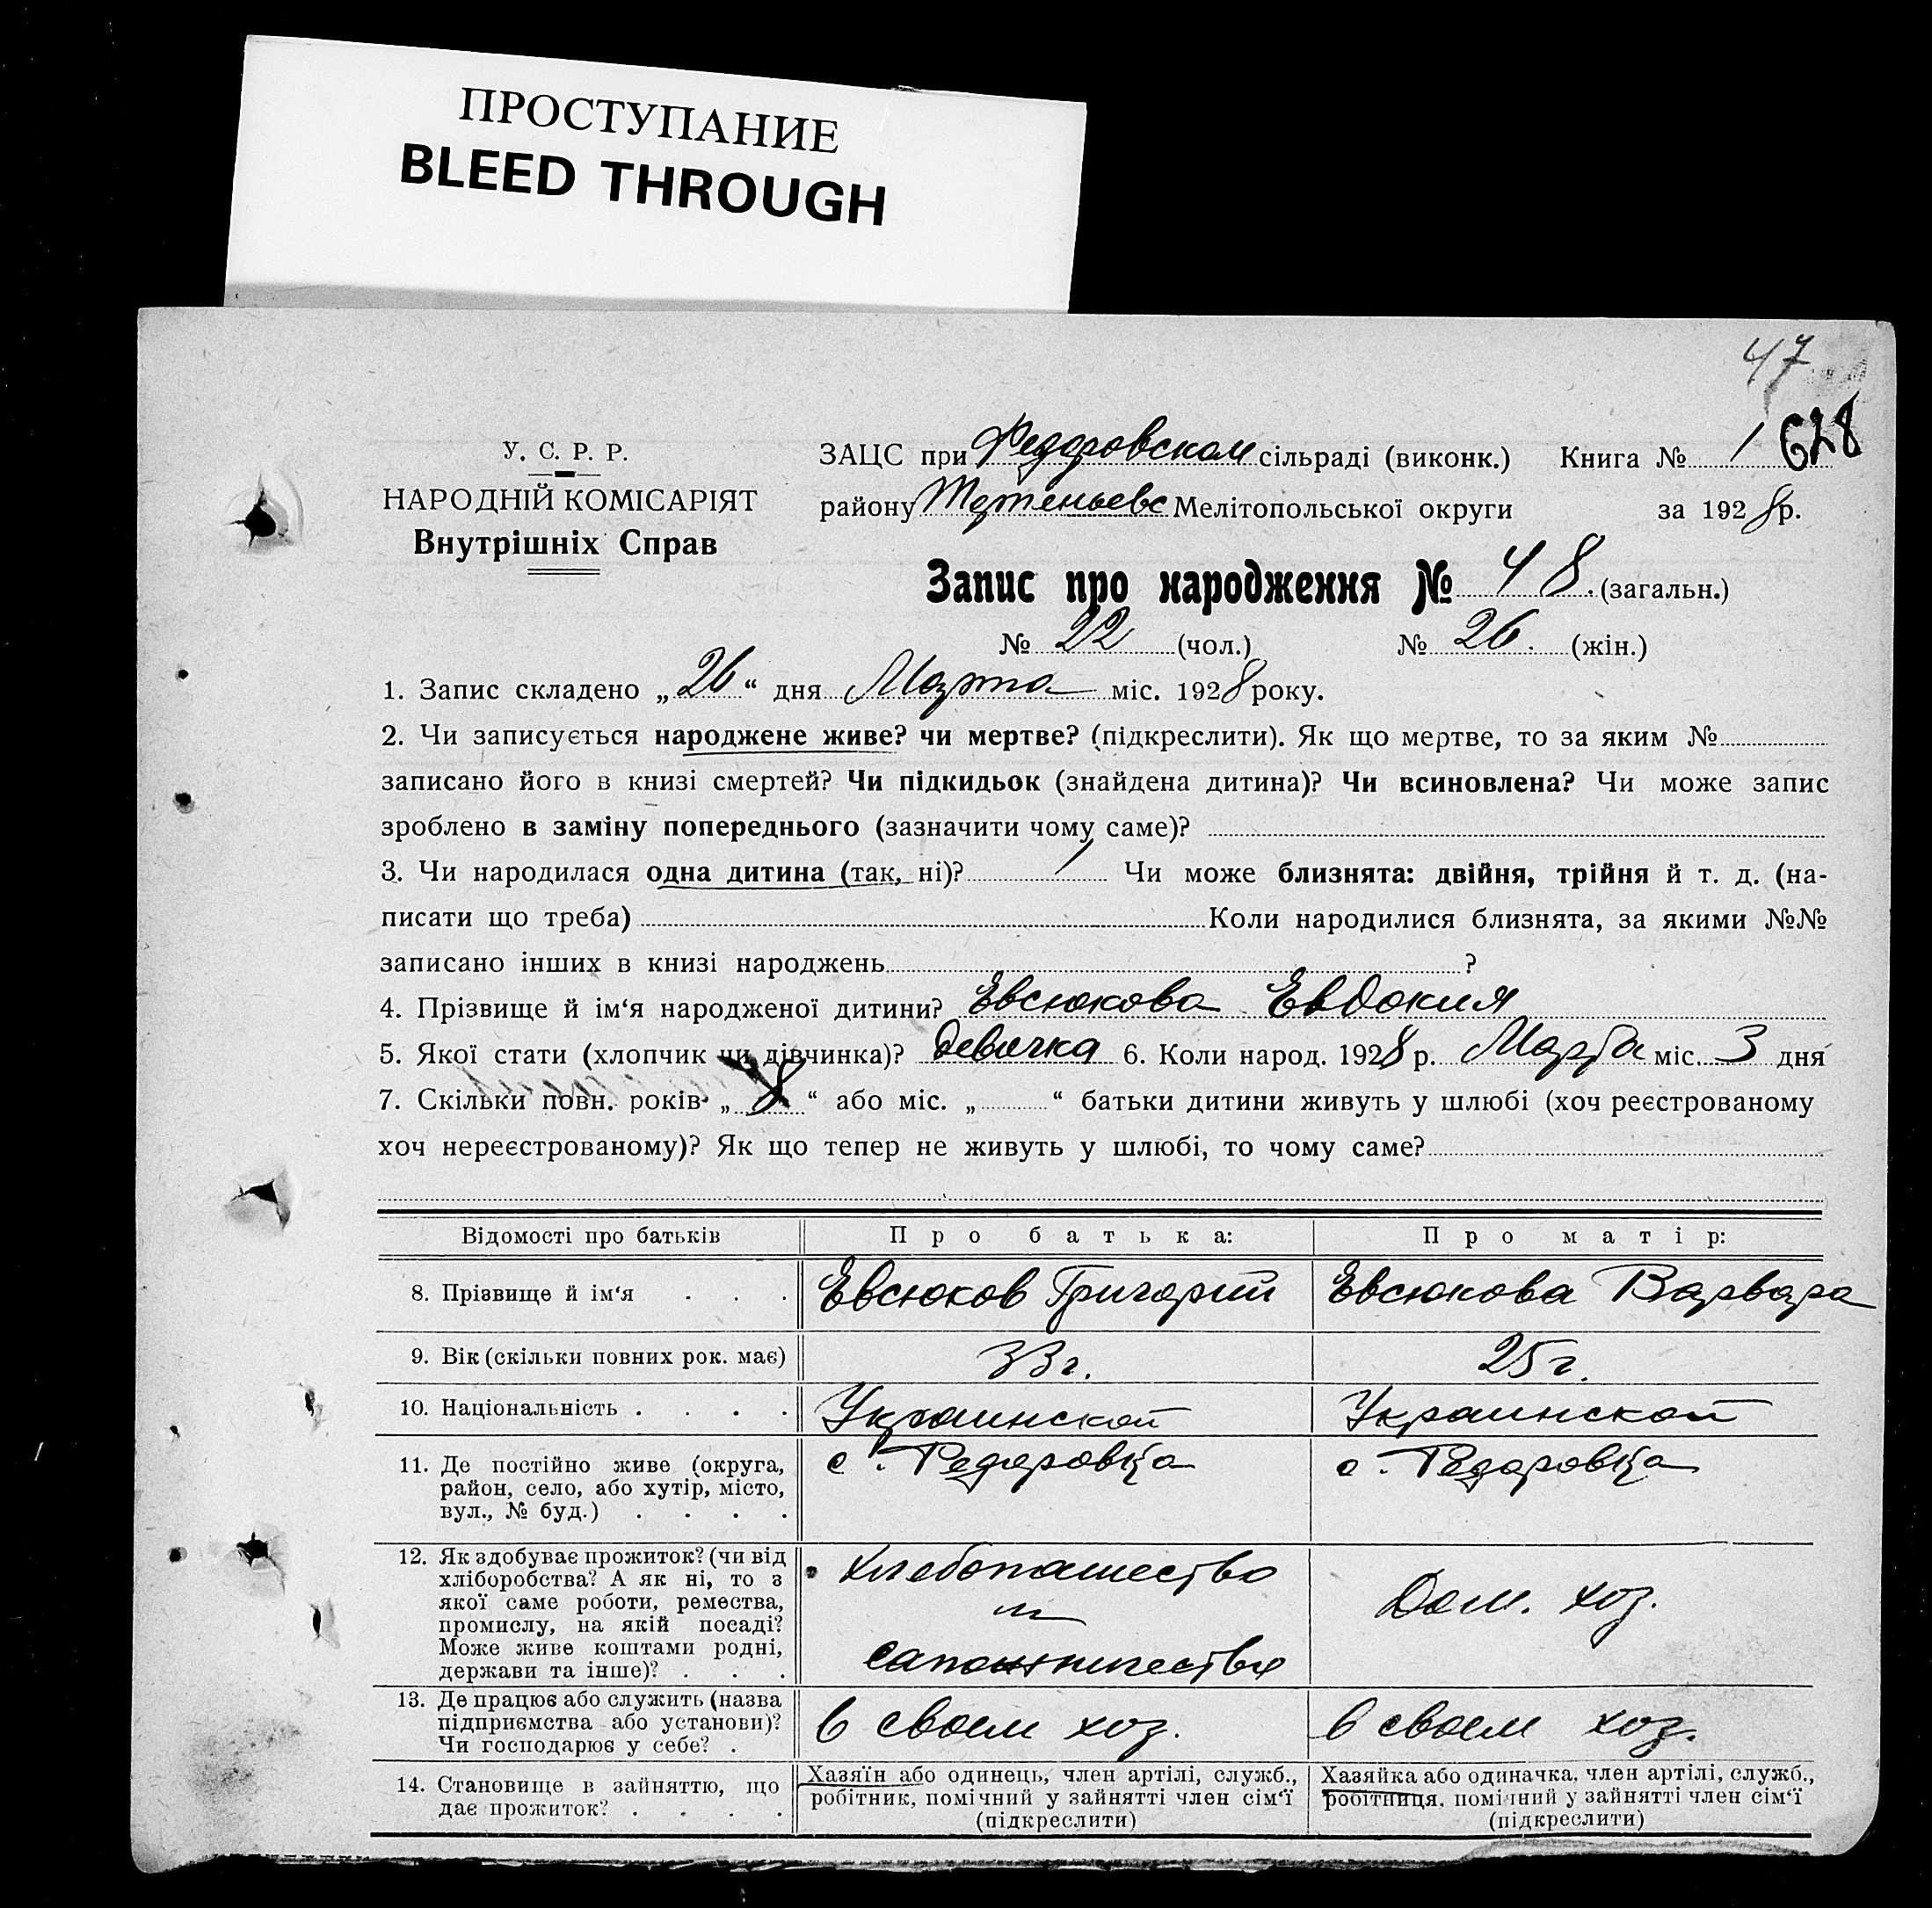 ПРОСТУПАНИЕ
BLEED THROUGH
47
У. С. Р. Р.
НАРОДНІЙ КОМІСАРІЯТ
Внутрішніх Справ
ЗАЦС при Федоровском сільраді (виконк.) Книга № 1 628
району Мелітопольської округи за 1928 р.
Запис про народження № 48. (загальн.)
№ 22 (чол.) № 26. (жін.)
1. Запис складено „26“ дня Марта міс. 1928 року.
2. Чи записується народжене живе? чи мертве? (підкреслити). Як що мертве, то за яким №
записано його в книзі смертей? Чи підкидьок (знайдена дитина)? Чи всиновлена? Чи може запис
зроблено в заміну попереднього (зазначити чому саме)?
3. Чи народилася одна дитина (так, ні)? 1 Чи може близнята: двійня, трійня й т. д. (на-
писати що треба) Коли народилися близнята, за якими №№
записано інших в книзі народжень ?
4. Прізвище й ім‘я народженої дитини? Евсюкова Евдокия
5. Якої стати (хлопчик чи дівчинка)? девочка 6. Коли народ. 1928 р. Марта міс. 3 дня
7. Скільки повн. років „8“ або міс. „ “ батьки дитини живуть у шлюбі (хоч реєстрованому
хоч нереєстрованому)? Як що тепер не живуть у шлюбі, то чому саме?
Відомості про батьків Про батька: Про матір:
8. Прізвище й ім‘я . . . Евсюков Григорий Евсюкова Варвара
9. Вік (скільки повних рок. має) 33 г. 25 г.
10. Національність . . . . Украинской Украинской
11. Де постійно живе (округа,
район, село, або хутір, місто,
вул., № буд.) . . . .
с. Федоровка
с. Федоровка
12. Як здобуває прожиток? (чи від
хліборобства? А як ні, то з
якої саме роботи, ремества,
промислу, на якій посаді?
Може живе коштами родні,
держави та інше)? . . .
хлебопашество
и
сапожничество
Дом. хоз.
13. Де працює або служить (назва
підприємства або установи)?
Чи господарює у себе? .
в своем хоз.
в своем хоз.
14. Становище в зайняттю, що
дає прожиток? . . . .
Хазяїн або одинець, член артілі, служб.,
робітник, помічний у зайнятті член сім‘ї
(підкреслити)
Хазяйка або одиначка, член артілі, служб.,
робітниця, помічний у зайнятті член сім‘ї
(підкреслити)